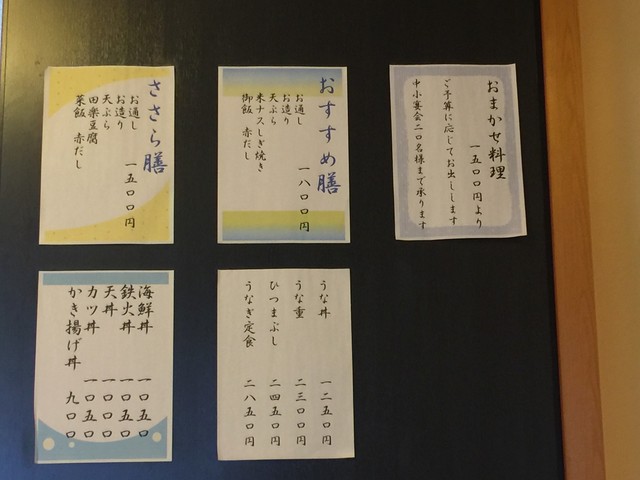 おまかせ料理
一五〇〇円より
ご予算に応じてお出しします
中小宴会二〇名様まで承ります
おすすめ膳
お通し
お造り
天ぷら
米ナスしぎ焼き
御飯 赤だし
一八〇〇円
ささら膳
お通し
お造り
天ぷら
田楽豆腐
菜飯 赤だし
一五〇〇円
うな丼 一二五〇円
うな重 二三〇〇円
ひつまぶし 二四五〇円
うなぎ定食 二八五〇円
海鮮丼 一〇五〇
鉄火丼 一〇五〇
天丼 一〇〇〇
カツ丼 一〇五〇
かき揚げ丼 九〇〇